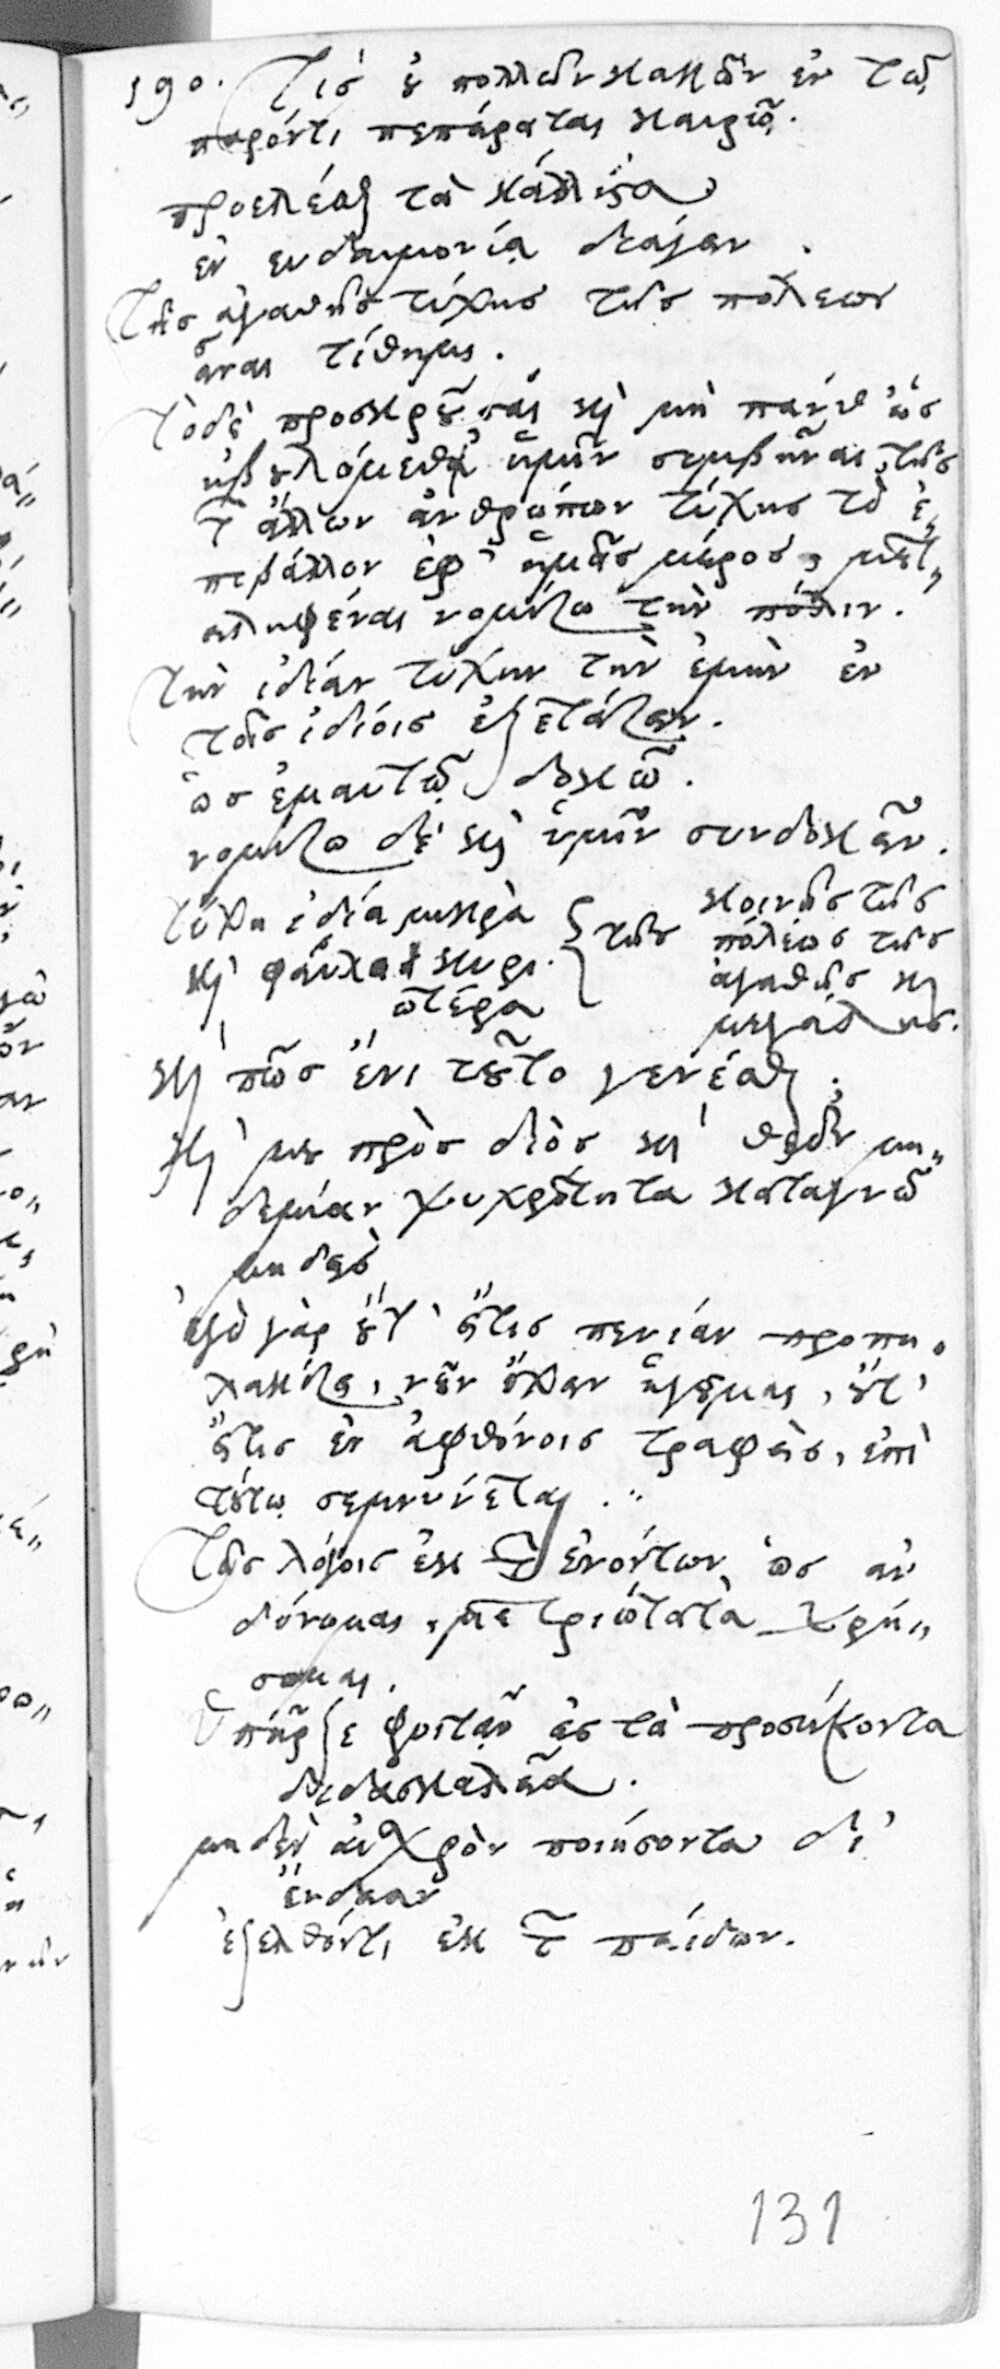 190. Τίς ȣ πολλῶν κακῶν ἐν τῶ
παρόντι πεπείραται καιρῶ.
προελέσθαι τὰ κάλλιστα
ἐν ευδαιμονία διάγειν.
Τῆς ἀγαθῆς τύχης τῆς πόλεως
εἶναι τίθημι.
Τὸ δὲ προσκρȣσαι καὶ μὴ πάνθ' ὡς
ηβȣλόμεθα ἡμῖν συμβῆναι, τῆς
τῶν ἄλλων ἀνθρώπων τύχης τὸ ἐ,,
πιβάλλον ἐφ' ἡμᾶς μέρος, μετ,,
ειληφέναι νομίζω τὴν πόλιν.
Τὴν ἰδίαν τύχην τὴν ἐμὴν ἐν
τοῖς ἰδίοις ἐξετάζειν.
ὡς ἐμαυτῶ δοκῶ.
νομίζω δὲ καὶ ὑμῖν συνδοκεῖν.
τύχη ἰδία μικρὰ
καὶ φαύλη κυρι.
ωτέρα
τῆς
κοινῆς τῆς
πόλεως τῆς
ἀγαθῆς καὶ
μεγάλης.
καὶ πῶς ἔνι τȣτο γενέσθαι;
Καί μȣ πρὸς διὸς καὶ θεῶν μη,,
δεμίαν ψυχρότητα καταγνῶ
μηδεὶς
ἐγὼ γὰρ ȣτ' εἴτις πενίαν προπη.
λακίζει, νȣν ἔχειν ἡγȣμαι, ȣτ'
εἴτις ἐν ἀφθόνοις τραφεὶς, ἐπὶ
τȣτω σεμνύνεται.
Τοῖς λόγοις ἐκ τῶν ἐνόντων ὡς ἂν
δύνωμαι, μετριώτατα χρή,,
σομαι.
ὑπῆρξε φοιτᾶν εἰς τὰ προσήκοντα
διδασκαλεῖα.
μηδὲν αἰσχρὸν ποιήσοντα δι'
ἔνδειαν
ἐξελθόντι ἐκ τῶν παίδων.
131